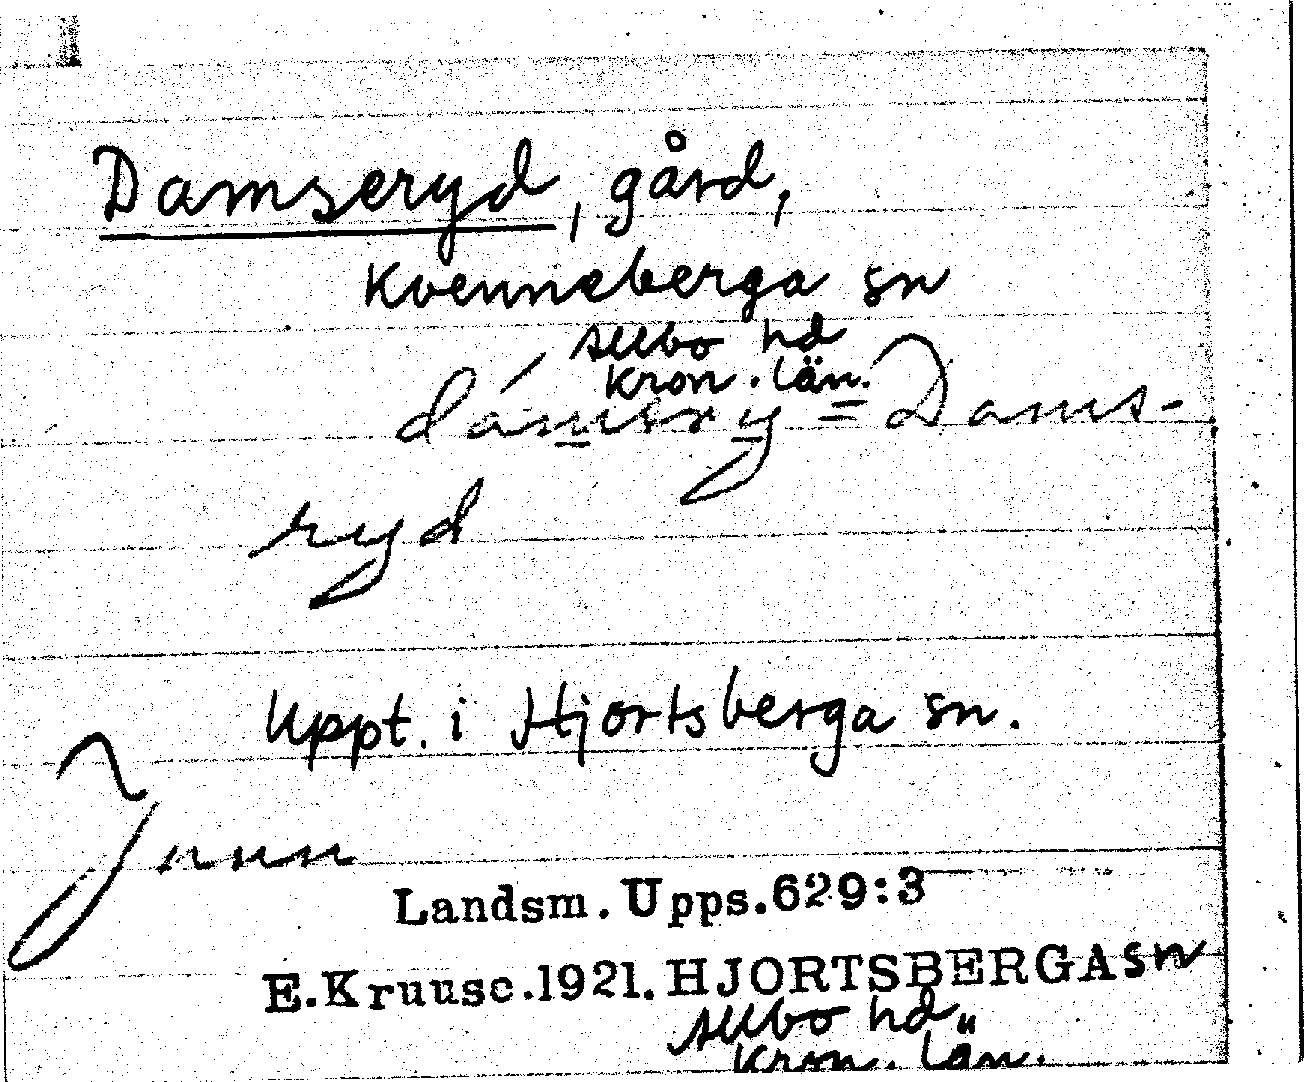 Damseryd, gård,
Kvenneberga sn
Allbo hd
Kron. län.
dámsry = Dams-
ryd
Uppt. i Hjortsberga sn.
Landsm. Upps. 629:3
E. Kruuse. 1921. HJORTSBERGA sn
Allbo hd
Kron. län.